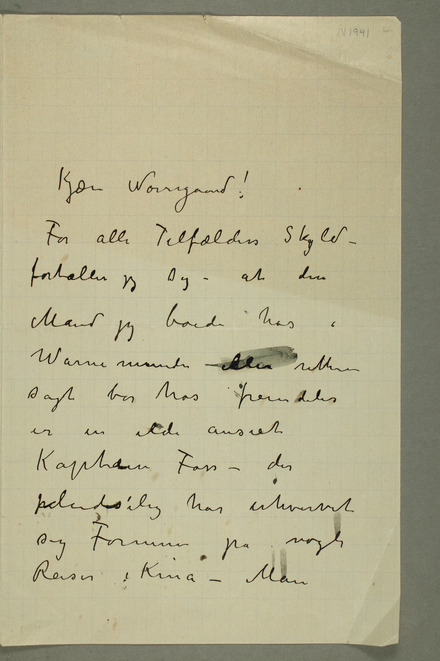 N 1941
Kjære Nørregaard!
For alle Tilfælders Skyld –
fortæller jeg Dig – at den
Mand jeg boede hos i
Warnemünde – eller rettere
sagt bor hos fremdeles
er en ilde anset
Kaptein Foss – der
pludselig har erhvervet
sig Formue på nogle
Reiser i Kina – Man